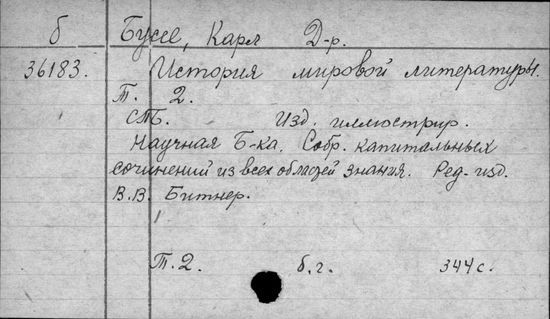 б Буссе, Карл Д-р.
36183. История мировой литературы.
Т. 2.
СПб. Изд. иллюстрир.
Научная Б-ка. Собр. капитальных
сочинений из всех областей знания. Ред-изд.
В.В. Битнер.
Т.2. б.г. 344 с.